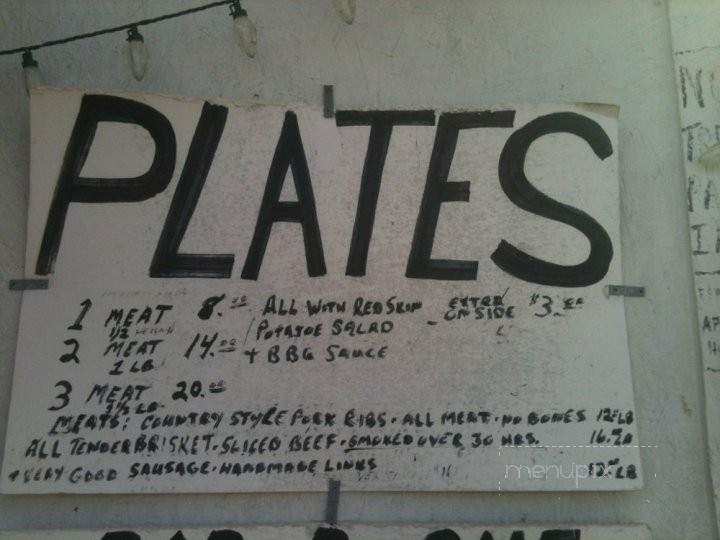 PLATES
1 MEAT 8.00 ALL WITH RED SKIN EXTRA ON SIDE $3. EA
1/2
2 MEAT 14.00 POTATOE SALAD
1 LB + BBG SAUCE
3 MEAT 20.00
1 1/2 LB
MEATS: COUNTRY STYLE PORK RIBS. ALL MEAT. NO BONES 12 LB
ALL TENDER BRISKET. SLICED BEEF. SMOKED OVER 30 HRS. 16.
+ VERY GOOD SAUSAGE. HANDMADE LINKS LB
menupix